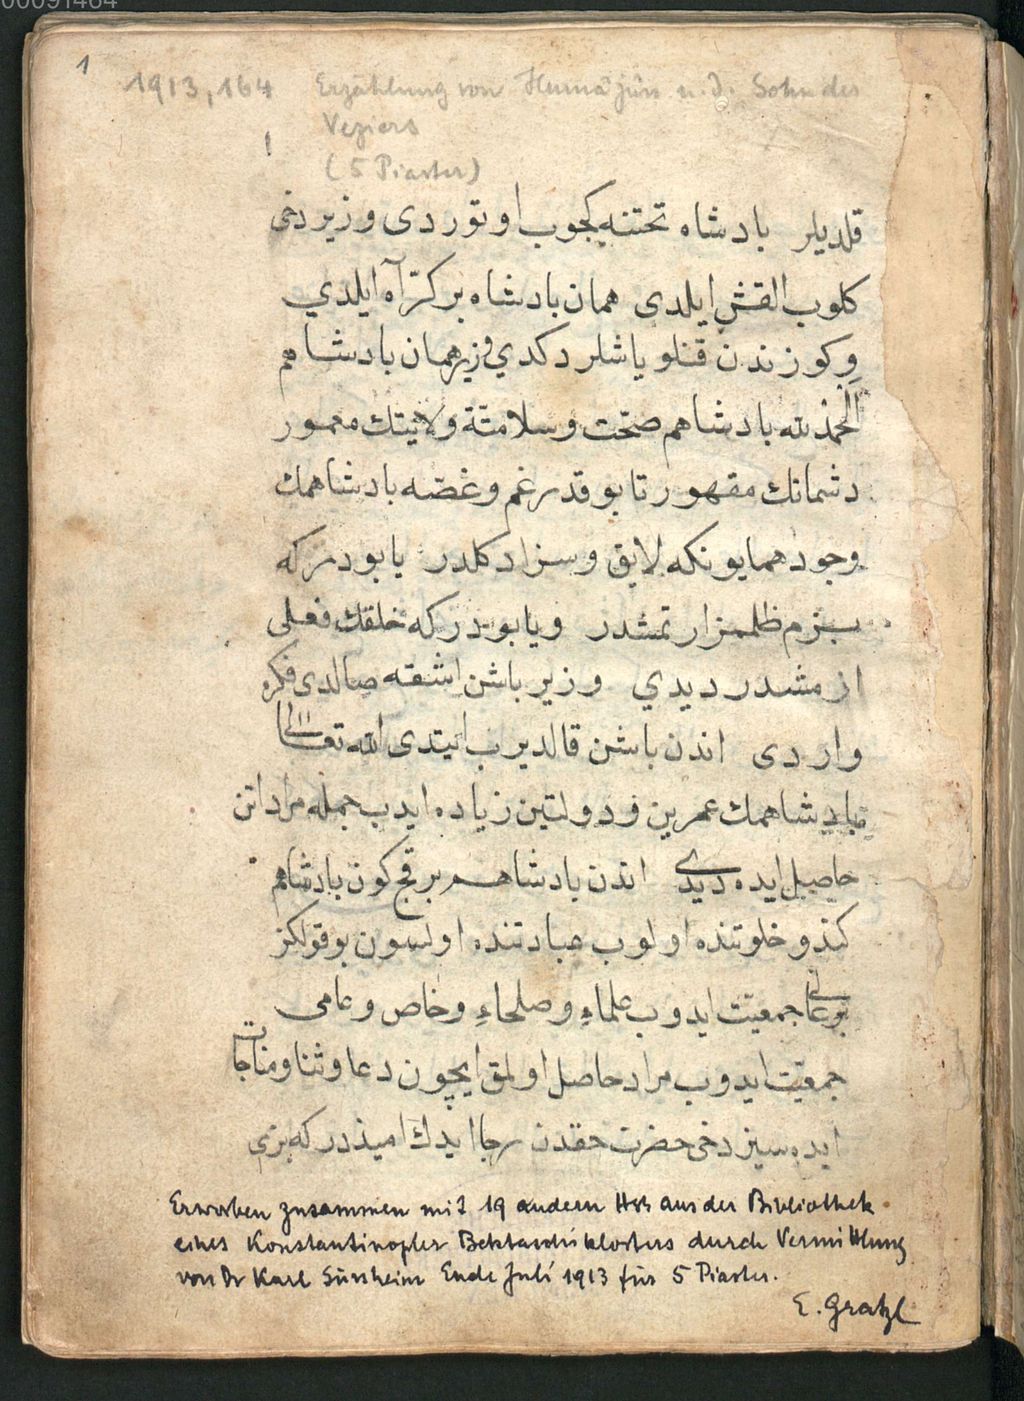 00091484
1
1913,164 Erzählung von Humâjûn u. d. Sohn des
Veziers
(5 Piaster)
قلدیلر پادشاه تختنه کچوب اوتوردی وزیر دخی
کلوب القش ایلدی همان پادشاه بر کرّ آه ایلدي
وکوزندن قنلو یاشلر دکدي وزیر همان پادشاهم
الحمدلله پادشاهم صحّت وسلامتة ولایتك معمور
دشمانك مقهور تا بو قدر غم وغصّه پادشاهمك
وجود همایونکه لایق وسزا دکلدر یا بودر که
بزم ظلممز ارتمشدر ویا بودر که خلقك فعلی
ازمشدر دیدي وزیر باشن اشقه صالدی فکره
واردی اندن باشن قالدیرب ایتدی الله تعالی
پادشاهمك عمرین و دولتین زیاده ایدب جمله مرادانن
حاصیل ایده دیدي اندن پادشاهم بر قچ کون پادشاهم
کندو خلوتنده اولوب عبادتنده اولسون بو قولکز
جمعیّت ایدوب علماءِ وصلحاءِ وخاص وعامی
جمعیّت ایدوب مراد حاصل اولمق ایچون دعا وثنا ومناجات
ایده سیز دخی حضرت حقدن رجا ایدك امیذدر که بزی
Erworben zusammen mit 19 andern Hss aus der Bibliothek
eines Konstantinopler Bektaschiklosters durch Vermittlung
von Dr Karl Süssheim Ende Juli 1913 für 5 Piaster.
E. Gratzl